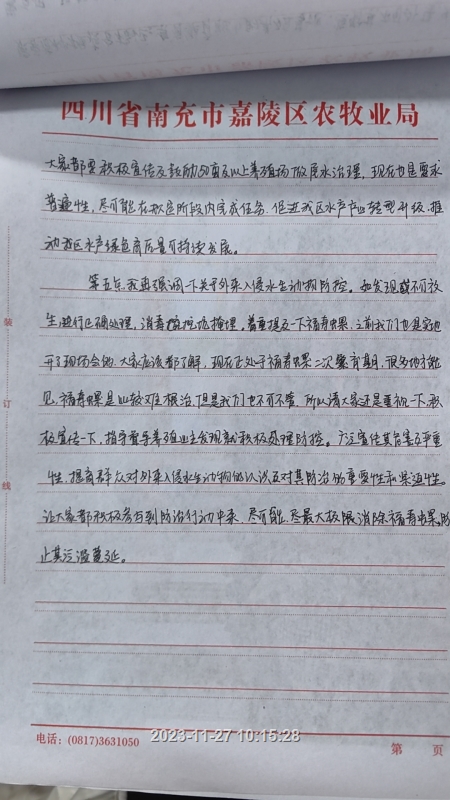 四川省南充市嘉陵区农牧业局
大家都要积极宣传及鼓励50亩及以上养殖场做尾水治理，现在也是要求
普遍性，尽可能在现在阶段内完成任务，促进我区水产产业转型升级，推
动我区水产绿色高质量可持续发展。
第五点，我再强调一下关于外来入侵水生动物防控。如发现或不可放
生，进行正确处理，消毒挖坑掩埋，着重提及一下福寿螺，之前我们也是实地
开了现场会的，大家应该都了解，现在正处于福寿螺二次繁育期，很多地方能
见，福寿螺是比较难根治，但是我们也不可不管，所以请大家还是重视一下，积
极宣传一下，指导督导养殖业主发现就积极处理防控。广泛宣传其危害及严重
性，提高群众对外来入侵水生动物的认识及对其防治的重要性和紧迫性。
让大家都积极参与到防治行动中来，尽可能，尽最大极限消除福寿螺，防
止其污温蔓延。
装
订
线
电话：(0817)3631050
2023-11-27 10:15:28
第 页